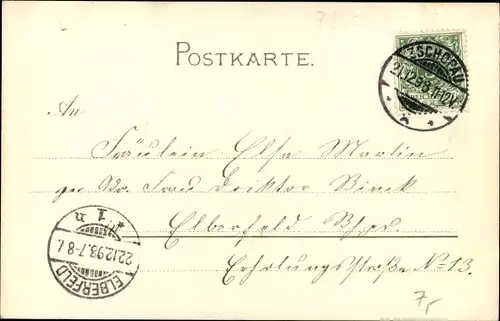 POSTKARTE.
ZSCHOPAU
21.12.98.11-12V.
An
Fräulein Elsa Martin
per Adr. Frau Direktor Binck
Elberfeld
Erholungsstraße No 13.
ELBERFELD
22.12.98.7-8V.
1 n
7,-